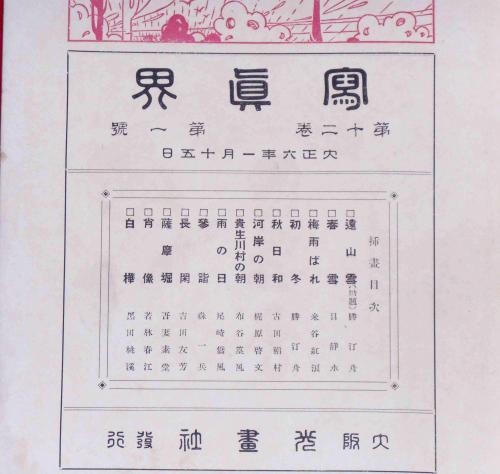 寫眞界
第十二卷 第一號
大正六年一月十五日
挿畫目次
□遠山雪 勝汀舟
□春雪 貝靜水
□梅雨ばれ 米谷紅浪
□初冬 勝汀舟
□秋日和 古田稻村
□河岸の朝 梶原啓文
□貴生川村の朝 布谷墓風
□雨の日 尾崎
□參詣 森一兵
□長閑 吉田友芳
□薩摩堀 吾妻素堂
□肖像 若林春江
□白樺 黑田桃溪
大阪光畫社發行